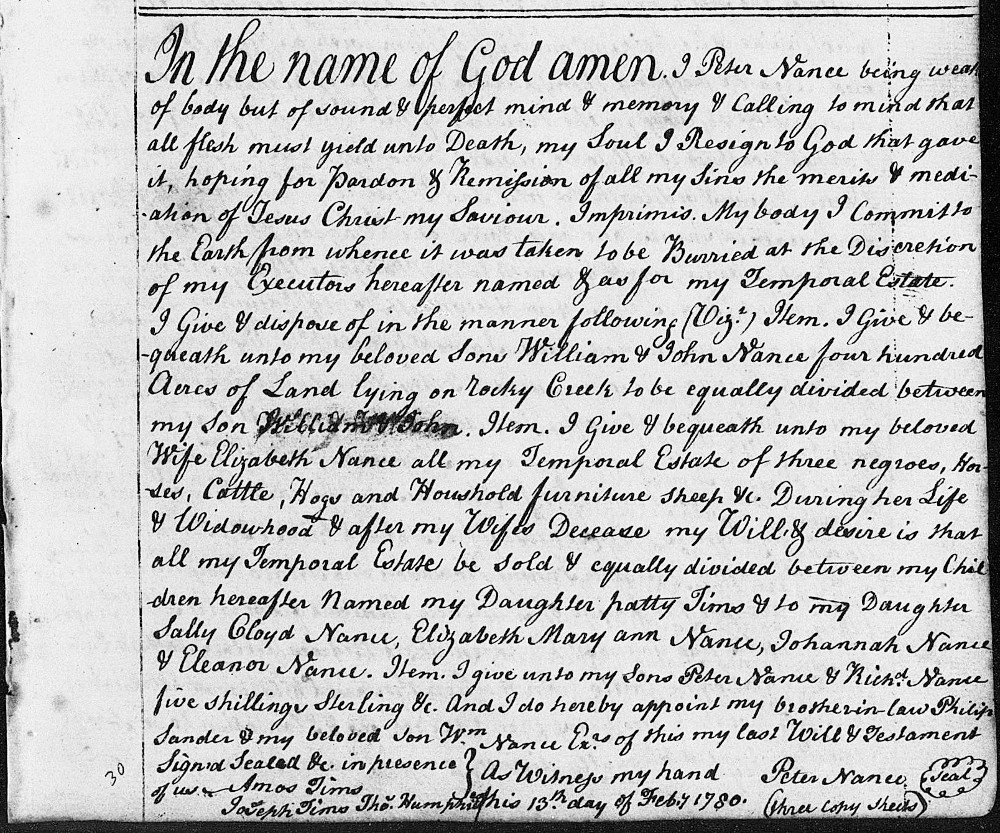 In the name of God amen. I Peter Nance being weak
of body but of sound & perfect mind & memory & Calling to mind that
all flesh must yield unto Death, my Soul I Resign to God that gave
it, hoping for Pardon & Remission of all my Sins the merits & medi-
-ation of Jesus Christ my Saviour. Imprimis. My body I Commit to
the Earth from whence it was taken to be Burried at the Discretion
of my Executors hereafter named & as for my Temporal Estate.
I Give & dispose of in the manner following (Vizt.) Item. I Give & be-
-queath unto my beloved Sons William & John Nance four hundred
Acres of Land lying on rocky Creek to be equally divided between
my Son William & John. Item. I Give & bequeath unto my beloved
Wife Elizabeth Nance all my Temporal Estate of three negroes, Hor-
ses, Cattle, Hogs and Houshold furniture sheep &c. During her Life
& Widowhood & after my Wifes Decease my Will & desire is that
all my Temporal Estate be sold & equally divided between my Chil
-dren hereafter Named my Daughter patty Tims & to my Daughter
Sally Cloyd Nance, Elizabeth Mary ann Nance, Johannah Nance
& Eleanor Nance. Item. I give unto my Sons Peter Nance & Richd. Nance
five shillings Sterling &c. And I do hereby appoint my brother in law Philip
Sander & my beloved Son Wm Nance Exrs of this my last Will & Testament
Signd Sealed &c. in presence } As Witness my hand Peter Nance (Seal)
of us. Amos Tims this 13th day of Feby 1780. (three Copy Sheets)
Joseph Tims Thos. Humphris
30